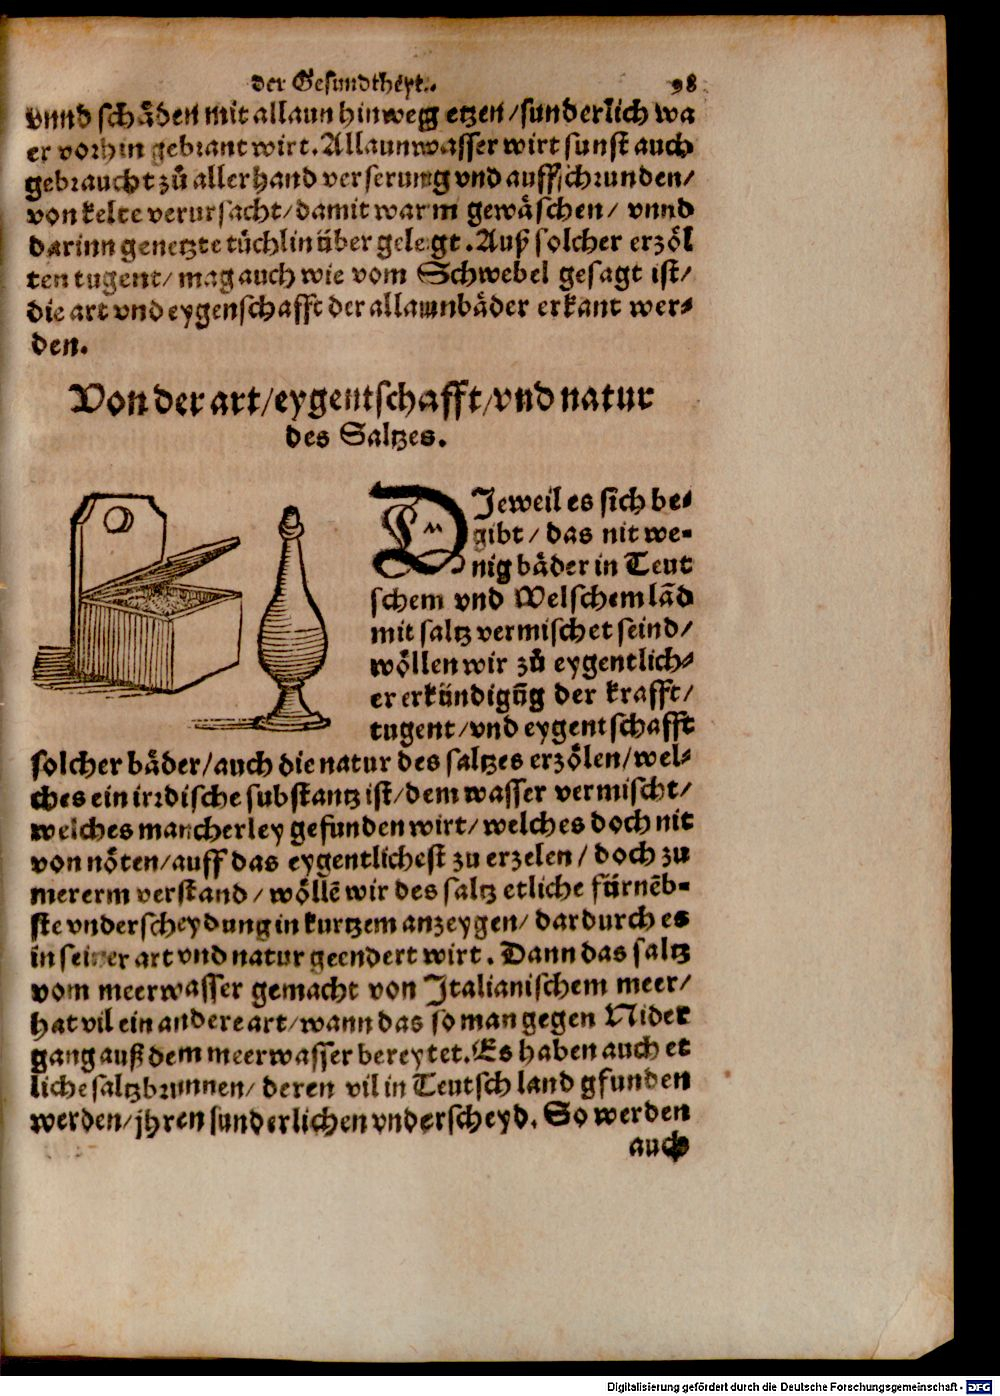 der Gesundtheyt. 98
vnnd schåden mit allaun hinweg etzen / sunderlich wa
er vorhin gebrant wirt. Allaunwasser wirt sunst auch
gebraucht zů allerhand verserung vnd auffschrunden /
von kelte verursacht / damit warm gewåschen / vnnd
darinn genetzte tůchlin über gelegt. Auß solcher erzöl
ten tugent / mag auch wie vom Schwebel gesagt ist /
die art vnd eygenschafft der allaunbåder erkant wer⸗
den.
Von der art / eygentschafft / vnd natur
des Saltzes.
DJeweil es sich be⸗
gibt / das nit we⸗
nig båder in Teut
schem vnd Welschem lād
mit saltz vermischet seind /
wöllen wir zů eygentlich⸗
er erkündigūg der krafft /
tugent / vnd eygentschafft
solcher båder / auch die natur des saltzes erzölen / wel⸗
ches ein irrdische substantz ist / dem wasser vermischt /
welches mancherley gefunden wirt / welches doch nit
von nöten / auff das eygentlichest zu erzelen / doch zu
mererm verstand / wöllē wir des saltz etliche fürnēb⸗
ste vnderscheydung in kurtzem anzeygen / dardurch es
in seiner art vnd natur geendert wirt. Dann das saltz
vom meerwasser gemacht von Jtalianischem meer /
hat vil ein andere art / wann das so man gegen Nider
gang auß dem meerwasser bereytet. Es haben auch et
liche saltzbrunnen / deren vil in Teutsch land gfunden
werden / jhren sunderlichen vnderscheyd. So werden
auch
Digitalisierung gefördert durch die Deutsche Forschungsgemeinschaft - DFG